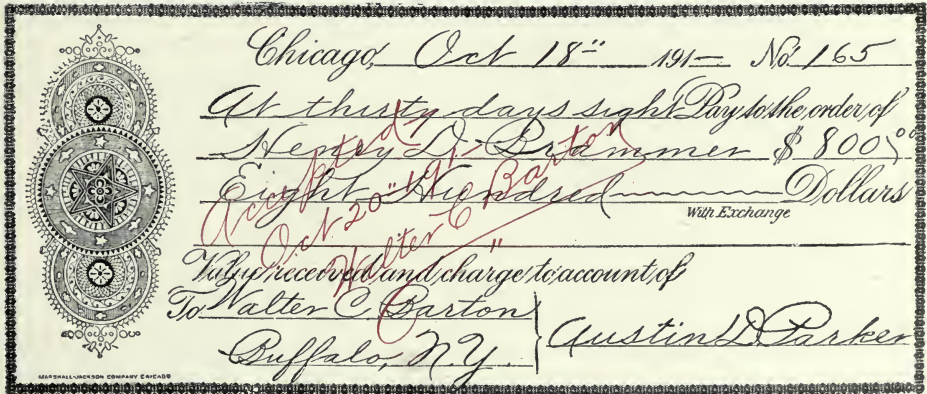 Chicago, Oct 18" 191— No. 165
At thirty days sight Pay to the order of
Henry D. Brammer $800 00
Eight Hundred Dollars
With Exchange
Accepted
Oct. 20" 191—
Walter C. Barton
Value received and charge to account of
To Walter C. Barton
Buffalo, N.Y.
Austin D. Parker
MARSHALL-JACKSON COMPANY CHICAGO